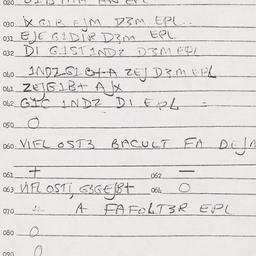 020
030 X G1B EJM D3M EPL..
031 EJE G1DIR D3M EPL
032 DI G1ST1NDZ D3M EPL
040 1NDZG1B+A ZEJ D3M EPL
041 ZEJG1B+ AJX
042 G1C 1NDZ D1 EPL
050 O
060 VIFL OST3 BACULT FA DEJM
061 + 062 —
063 VIFL OSTI, G3GEJB+ 064 O
070 A FAFOLT3R EPL
080 O
090 O